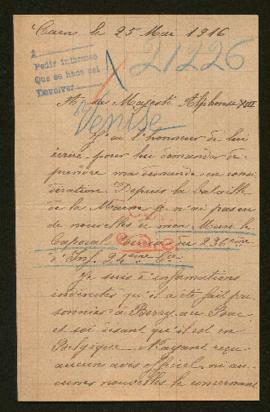 Caen le 25 Mai 1916
2
Pedir informes
Que se hace así
Devolver
21226
A sa Majesté Alphonse XIII
Venise
J'ai l'honneur de lui
écrire pour lui demander de
prendre ma demande en consi
dération. Depuis la bataille
de la Marne je n'ai pas eu
de nouvelles de mon Mari le
Caporal du 236ème
d'Inf. 24ème Cie.
Je suis informations
indirectes qu'il a été fait pri
sonnier à Berry au Bac
et soi disant qu'il est en
Belgique. N'ayant reçu
aucun avis officiel, ni au
cunes nouvelles le concernant